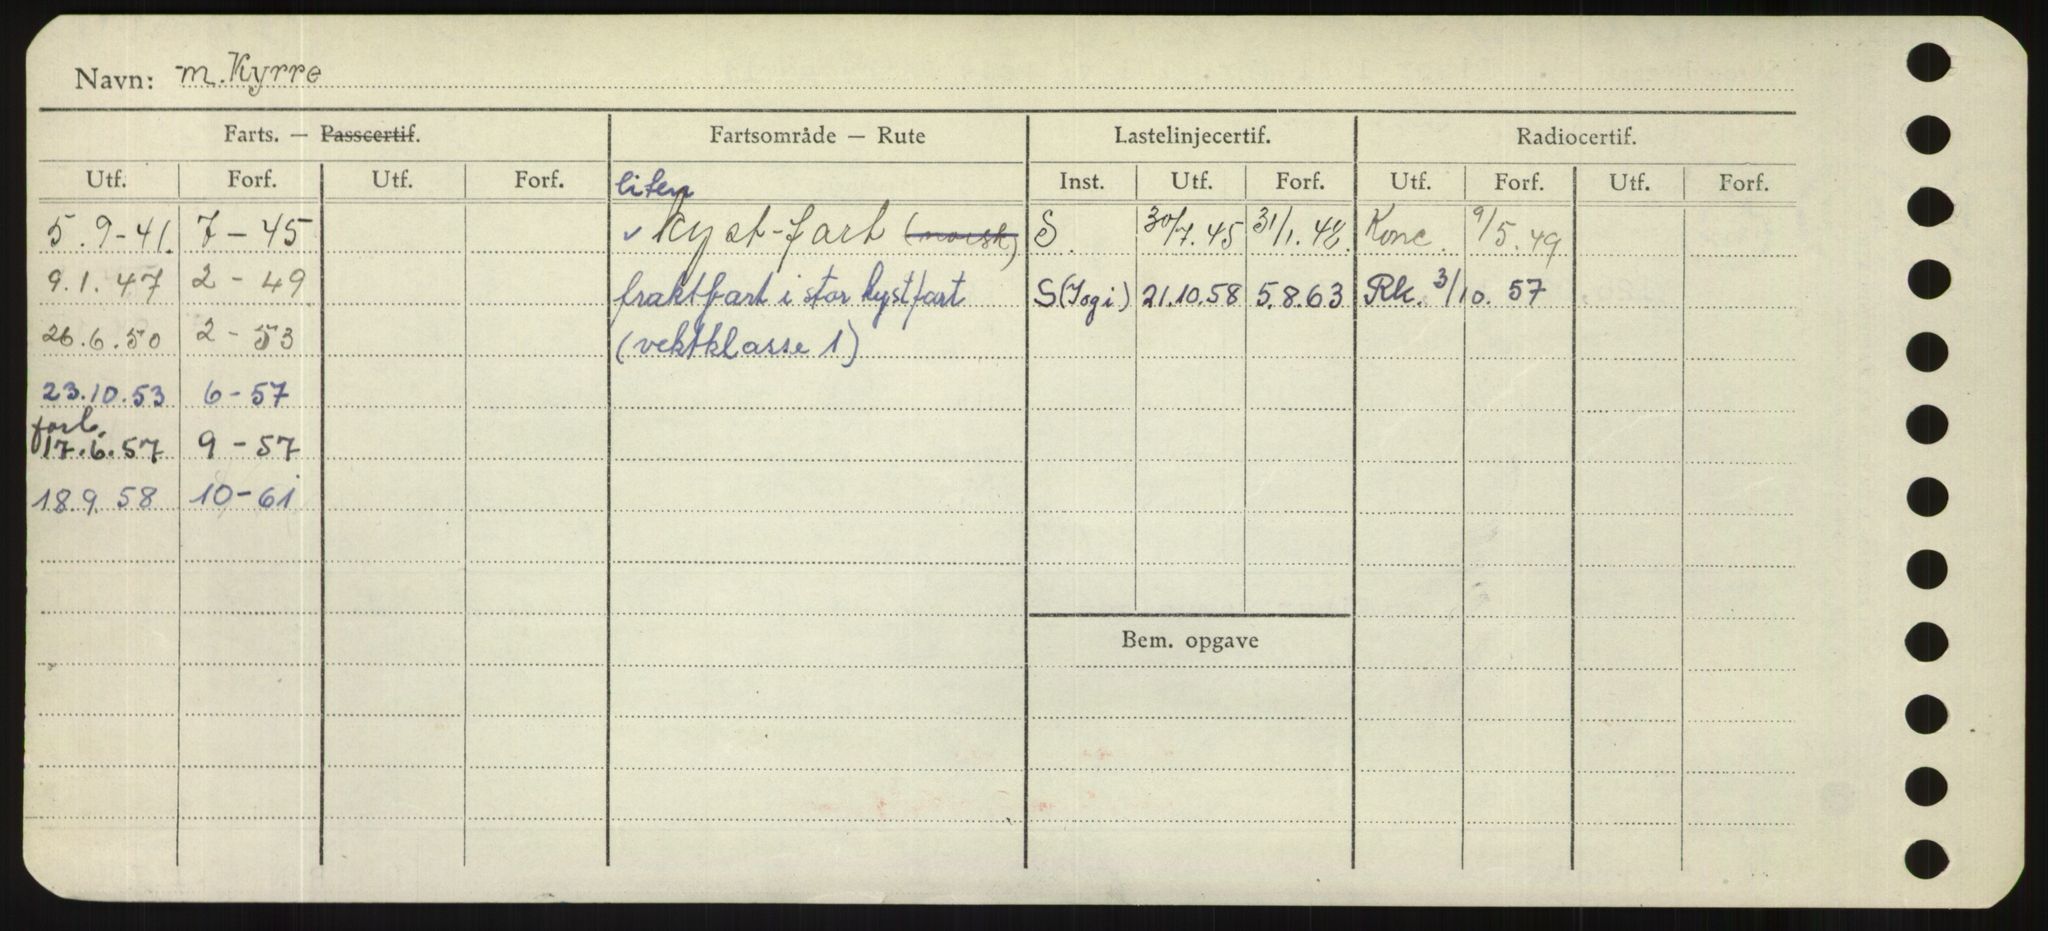 Navn: m. Kyrre
Farts. — Passcertif. Fartsområde — Rute Lastelinjecertif. Radiocertif.
Utf. Forf. Utf. Forf. Inst. Utf. Forf. Utf. Forf. Utf. Forf.
liten
5.9-41. 7-45 ✓ Kyst-fart (norsk) S. 30/7.45 31/1.48 Konc. 9/5.49
9.1.47 2-49 fraktfart i stor kystfart S(Jogi) 21.10.58 5.8.63 Rk. 3/10.57
26.6.50 2-53 (vektklasse 1)
23.10.53 6-57
forl.
17.6.57 9-57
18.9.58 10-61
Bem. opgave